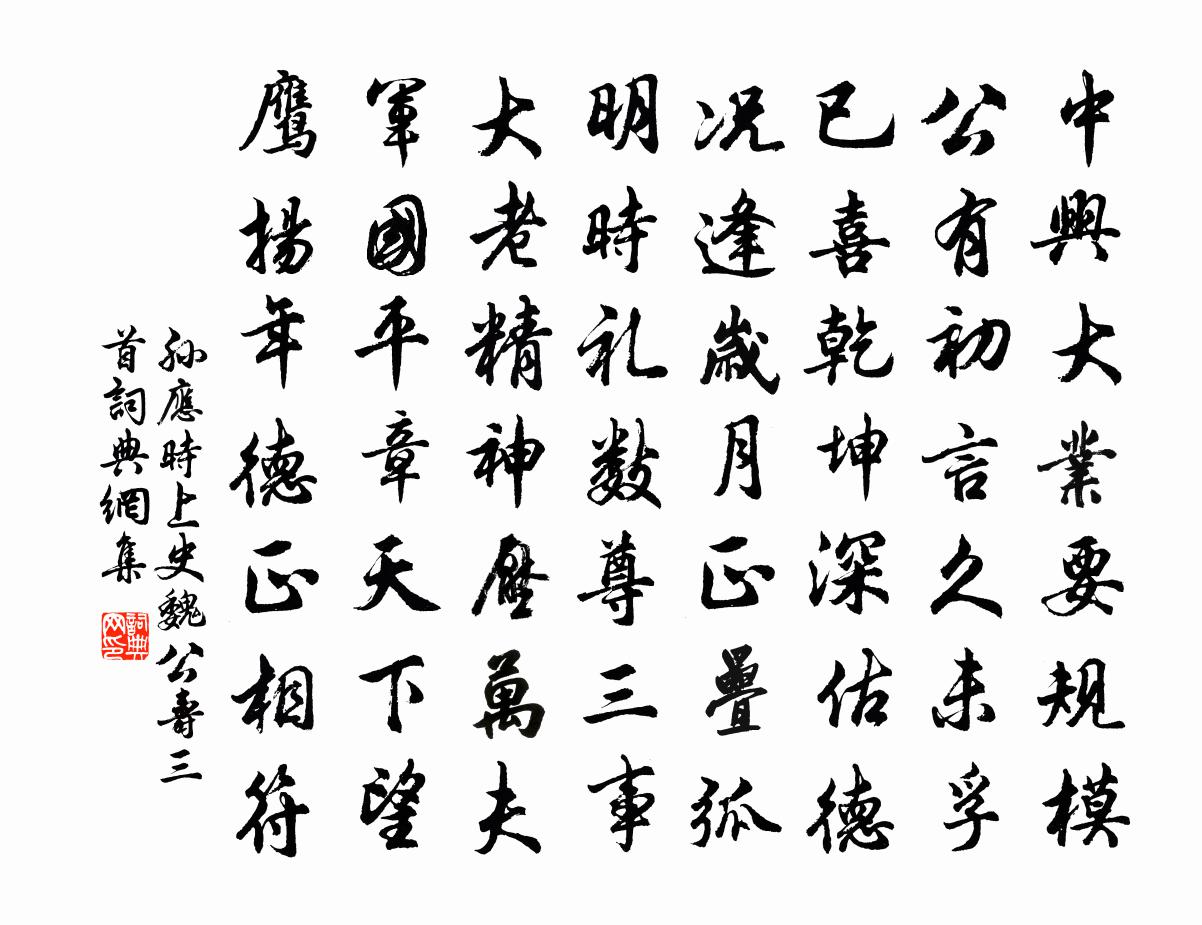 中興大業要規模
公有初言久未孚
已喜乾坤深佑德
况逢歲月正疊弧
明時礼数尊三事
大老精神壓萬夫
軍國平章天下望
鷹揚年德正相符
孙應時上史魏公壽三
首詞典網集
詞典网印